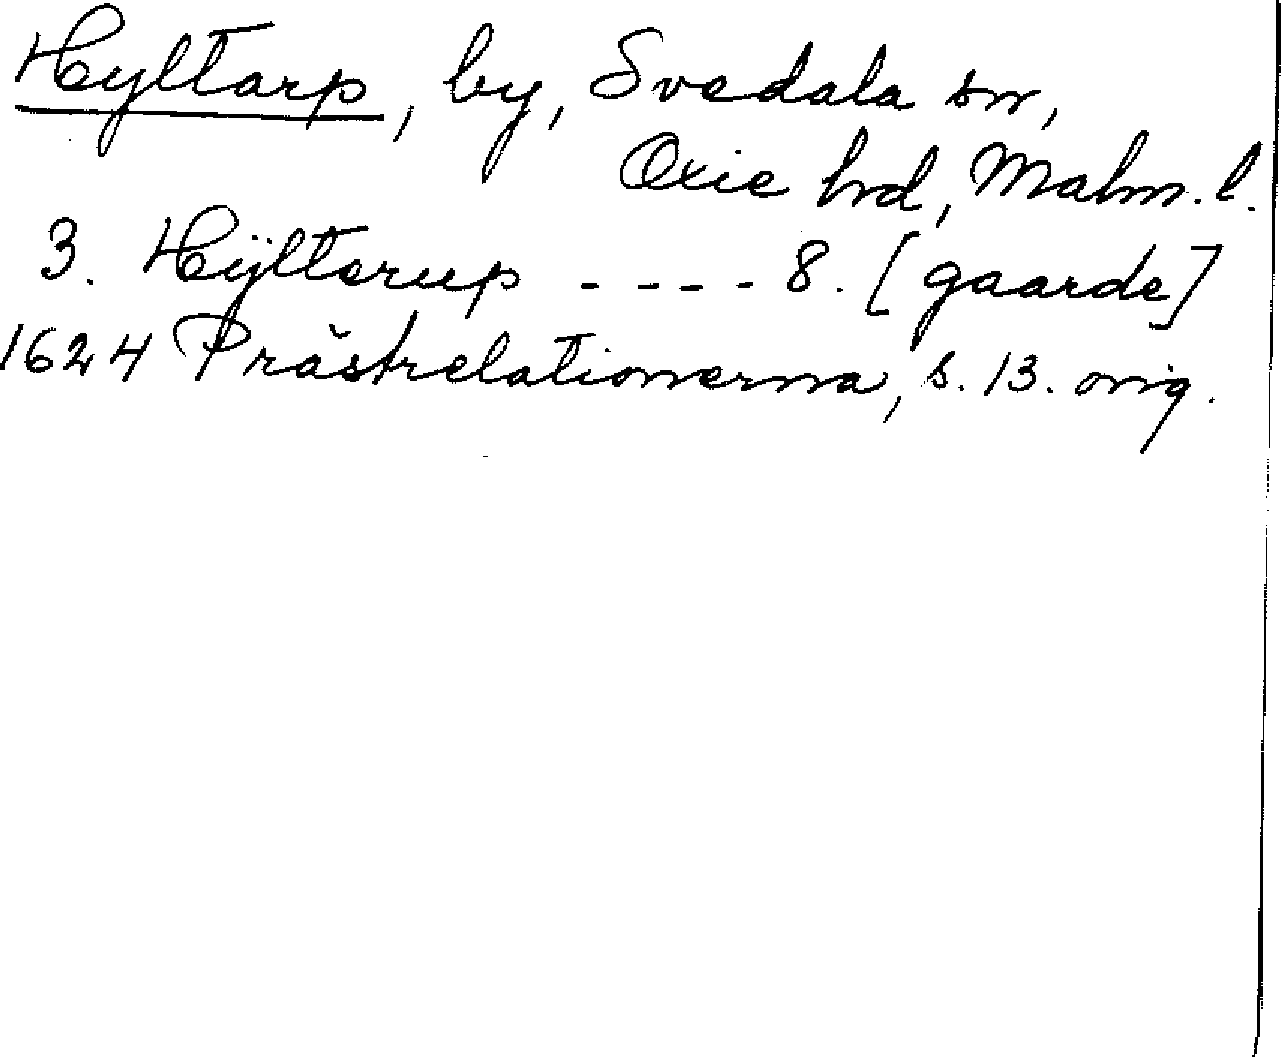 Hyltarp, by, Svedala sn,
Oxie hrd, Malm. l.
3. Hÿlterup - - - - 8. [gaarde]
1624 Prästrelationerna, s. 13. orig.